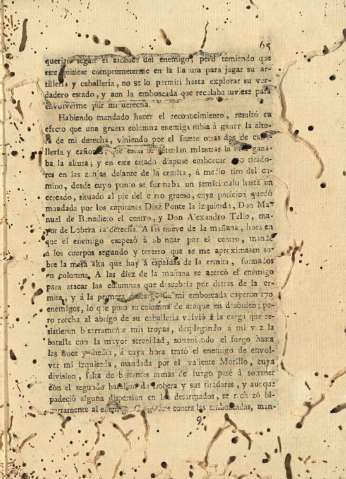 65
queria seguir el enemigo, pero temiendo que
este quisiese comprometerme en la llanura para jugar su ar-
tilleria y caballeria, no se lo permití hasta explorar su ver-
dadero estado, y aun la emboscada que recelaba tuviese para
envolverme por mi derecha.
Habiendo mandado hacer el reconocimiento, resultó en
efecto que una gruesa columna enemiga subia á ganar la altu-
ra de mi derecha, viniendo por el frente otras dos de caba-
llería y cañones, que mientras la otra gana-
ba la altura; y en este estado dispuse emboscar tirado-
res en las zanjas delante de la ermita, á medio tiro del ca-
mino, desde cuyo punto se formaba un semicirculo hasta un
cercado, situado al pie del cerro grueso, cuya posicion quedó
mandada por los capitanes Diez Ponte la izquierda, Don Ma-
nuel de Benedicto el centro, y Don Alexandro Tello, ma-
yor de Lobera la derecha. A las nueve de la mañana, hora en
que el enemigo empezó á abanzar por el centro, mandé
á los cuerpos segundo y tercero que se me aproximasen so-
bre la mesa alta que hay á espaldas de la ermita, formados
en columna. A las diez de la mañana se acercó el enemigo
para atacar las columnas que descubria por detras de la er-
mita, y á la primera de mi emboscada cayeron
enemigos, lo que puso su columna de ataque en dispersion; pe-
ro rehecha al abrigo de su caballeria volvió á la carga que re-
sistieron bizarramente mis tropas, desplegando á mi vez la
batalla con la mayor serenidad, sosteniendo el fuego hasta
las doce y media, á cuya hora trató el enemigo de envol-
ver mi izquierda, mandada por el valiente Morillo, cuya
division, falta de bastantes armas de fuego pasé á sostener
con el segundo batallon de Lobera y sus tiradores, y aunque
padeció alguna dispersion en los desarmados, se rehizo bi-
zarramente al contra las emboscadas, man-
9